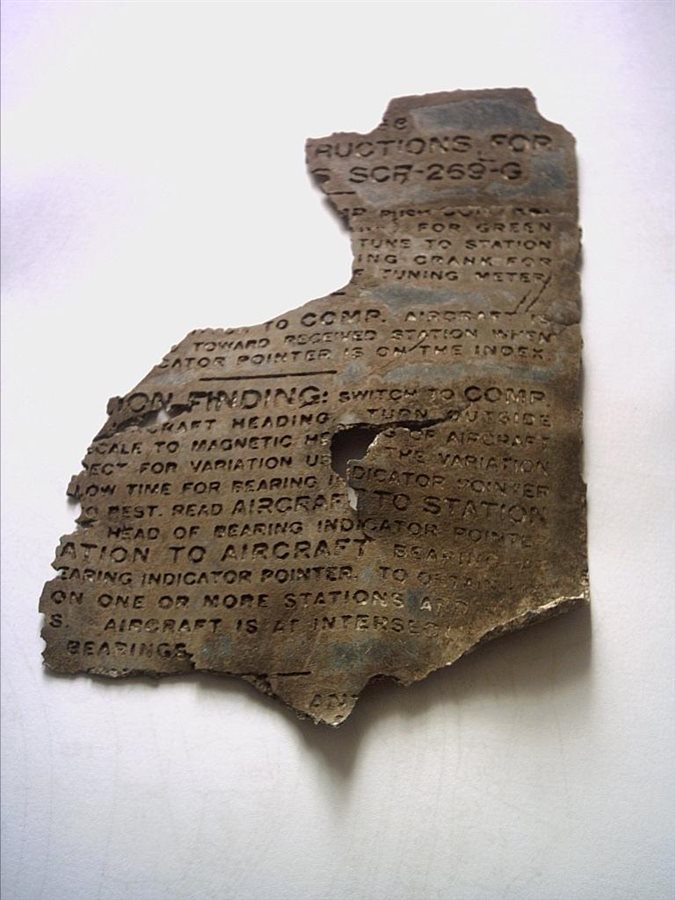 RUCTIONS FOR
S SCR-269-G
PUSH CONTROL
FOR GREEN
TUNE TO STATION
ING CRANK FOR
F TUNING METER
TO COMP. AIRCRAFT IS
TOWARD RECEIVED STATION WHEN
CATOR POINTER IS ON THE INDEX.
ION FINDING: SWITCH TO COMP.
CRAFT HEADING. TURN OUTSIDE
SCALE TO MAGNETIC HE OF AIRCRAFT
ECT FOR VARIATION US THE VARIATION
LOW TIME FOR BEARING INDICATOR POINTER
O REST. READ AIRCRAFT TO STATION
HEAD OF BEARING INDICATOR POINTE
ATION TO AIRCRAFT BEARING
EARING INDICATOR POINTER. TO OBTAIN
ON ONE OR MORE STATIONS AND
S. AIRCRAFT IS AT INTERSEC
BEARINGS.
ANT